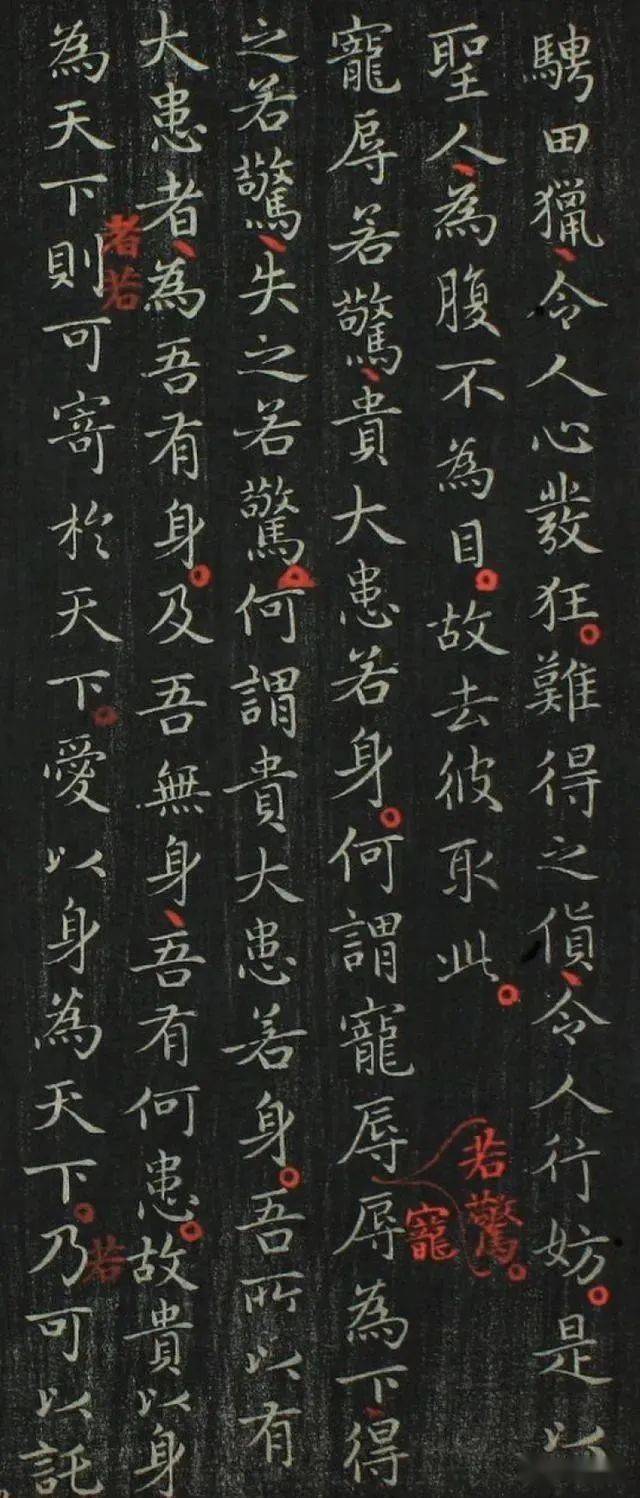 騁田獵、令人心發狂。難得之貨、令人行妨。是以
聖人、為腹不為目。故去彼取此。
寵辱若驚、貴大患若身。何謂寵辱辱為下、得
若驚。
寵
之若驚、失之若驚何謂貴大患若身。吾所以有
大患者、為吾有身。及吾無身、吾有何患。故貴以身
者若
為天下則可寄於天下。愛以身為天下。乃可以託
若